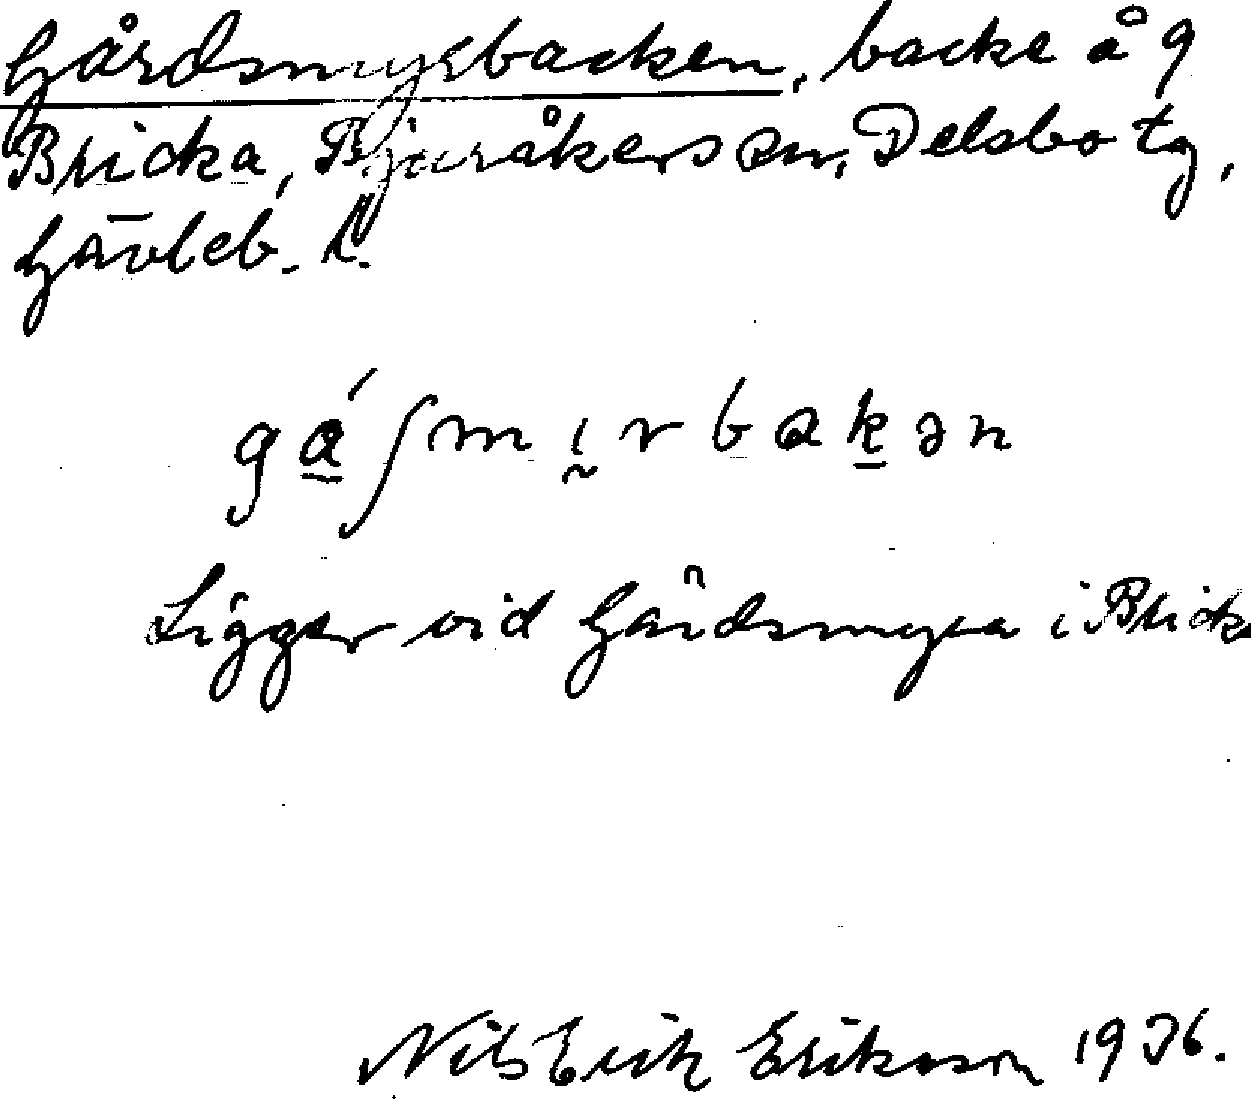 Gårdsmyrbacken, backe å g
Bricka, Bjuråkers sn, Delsbo tg,
Gävleb. l.
gáʃmırbakən
Ligger vid Gårdsmyra i Bricka
Nils Erik Erikson 1936.